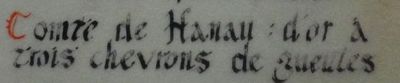 Comte de Hanau : d'or à
trois chevrons de gueules